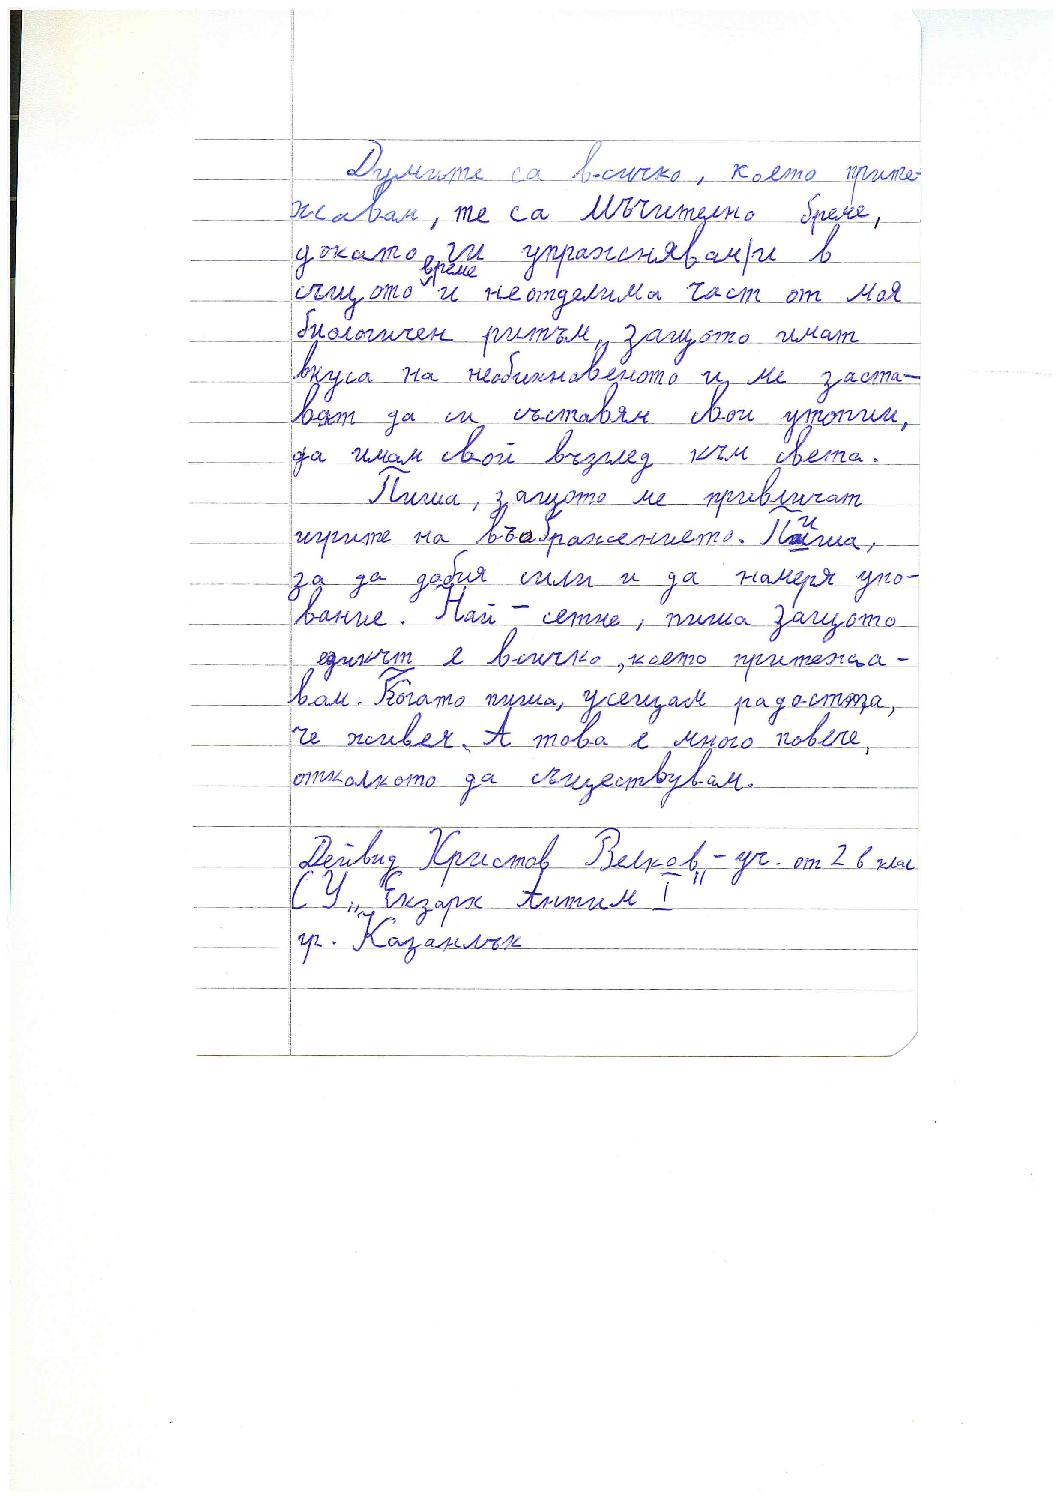 Думите са всичко, което прите-
жавам, те са мъчително бреме,
докато ги упражнявам/и в
същото време и неотделима част от моя
биологичен ритъм, защото имат
вкуса на необикновеното и ме заста-
вят да си съставям свои утопии,
да имам свой възглед към света.
Пиша, защото ме привличат
игрите на въображението. Пиша,
за да добия сили и да намеря упо-
вание. Най - сетне, пиша защото
езикът е всичко, което притежа-
вам. Когато пиша, усещам радостта,
че живея. А това е много повече,
отколкото да съществувам.
Дейвид Христов Велков - уч. от 2 в клас
СУ „Екзарх Антим I"
гр. Казанлък